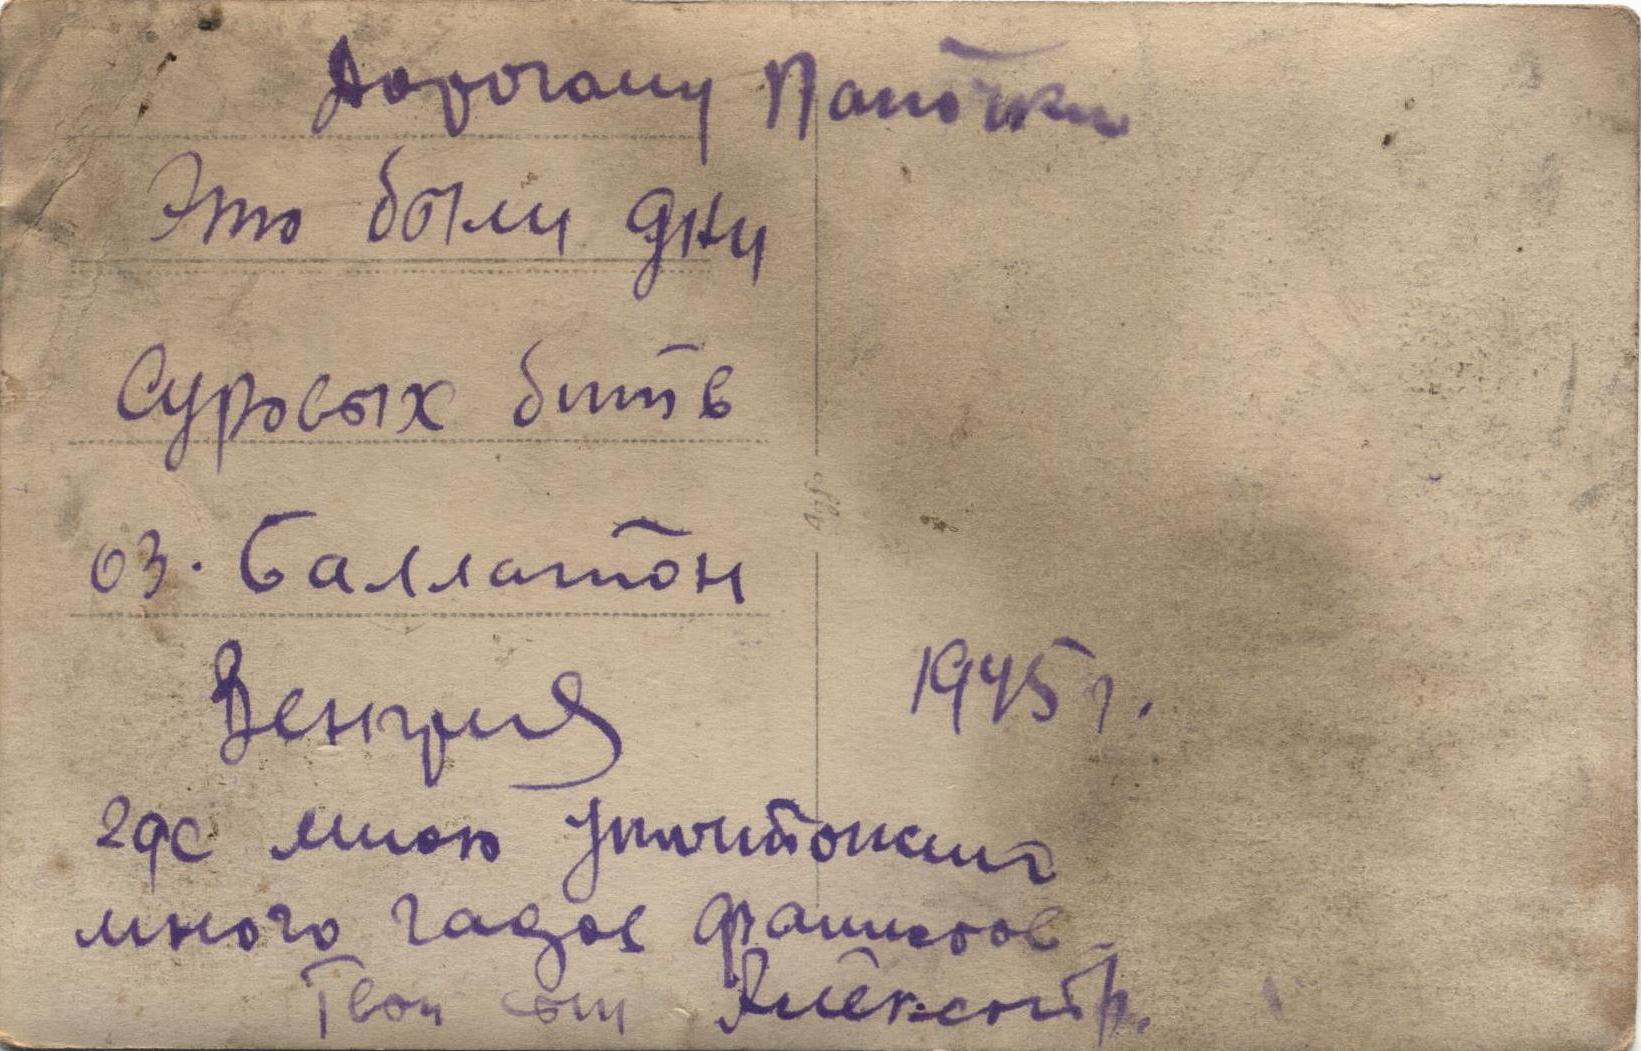 Дорогому Папочки
Это были дни
Суровых битв
оз. Баллатон
Венгрия 1945 г.
где мною уничтожино
много гадов фашистов
Твой сын Александр.
Адр.